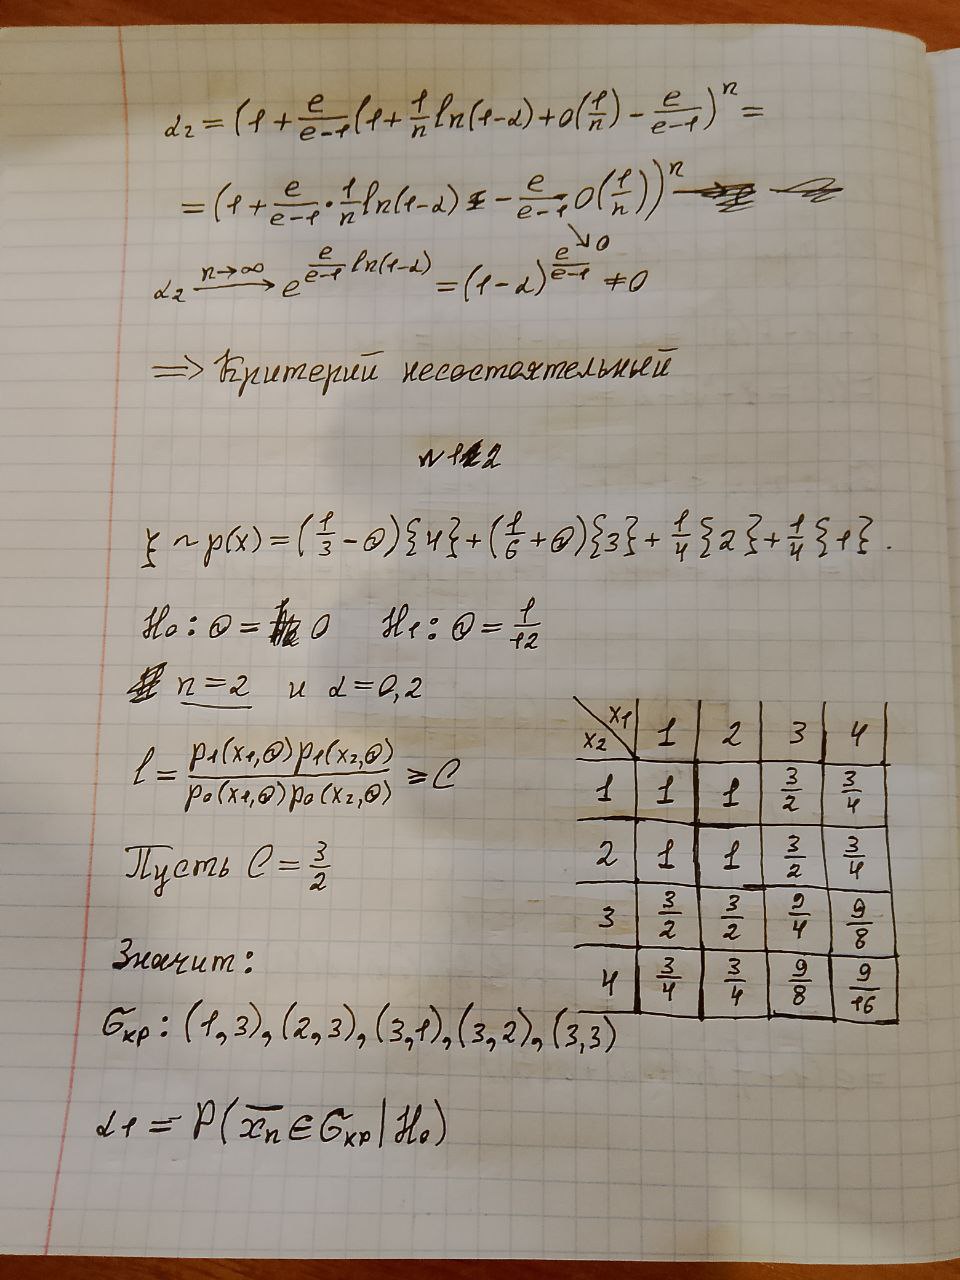 α₂ = (1 + e/(e-1) (1 + 1/n ln(1-α) + o(1/n) - e/(e-1))ⁿ =
= (1 + e/(e-1) · 1/n ln(1-α) - e/(e-1) · o(1/n))ⁿ
↘ 0
α₂ →(n→∞) e^(e/(e-1) ln(1-α)) = (1-α)^(e/(e-1)) ≠ 0
=> Критерий несостоятельный
№ 12
ξ ~ p(x) = (1/3 - θ){4} + (1/6 + θ){3} + 1/4{2} + 1/4{1}.
H₀: θ = 0 H₁: θ = 1/12
n = 2 и α = 0,2
l = p₁(x₁,θ)p₁(x₂,θ) / p₀(x₁,θ)p₀(x₂,θ) ≥ C
Пусть C = 3/2
x₂ \ x₁ 1 2 3 4
1 1 1 3/2 3/4
2 1 1 3/2 3/4
3 3/2 3/2 9/4 9/8
4 3/4 3/4 9/8 9/16
Значит:
Gкр: (1,3), (2,3), (3,1), (3,2), (3,3)
α₁ = P(x̄ₙ ∈ Gкр | H₀)